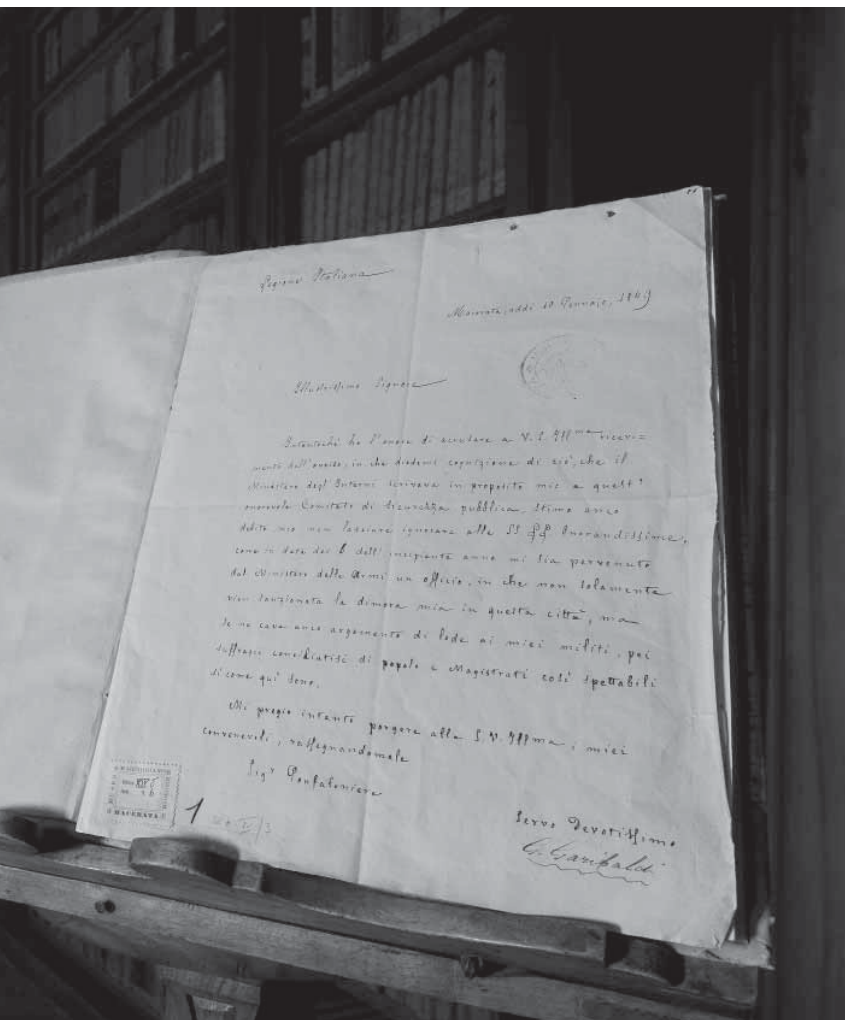 Legione Italiana
Macerata, addì 10 Gennajo, 1849
Illustrissimo Signore
Intantoché ho l'onore di accusare a V. S. Ill^ma ricevi=
mento dell'avviso, in che diedemi cognizione di ciò, che il
Ministero degl'Interni scriveva in proposito mio a quest'
onorevole Comitato di Sicurezza pubblica, stimo anco
debito mio non lasciare ignorare alle SS LL Onorandissime,
come in data dei 6 dell'incipiente anno mi sia pervenuto
dal Ministero delle Armi un officio, in che non solamente
vien sanzionata la dimora mia in questa città, ma
se ne cava anco argomento di lode ai miei militi, pei
suffragi conciliatisi di popolo e Magistrati così spettabili
sì come quì sono.
Mi pregio intanto porgere alla S. V. Illma i miei
convenevoli, raffegnandomele
Sig^r Gonfaloniere
Servo Devotissimo
G. Garibaldi
MACERATA
1